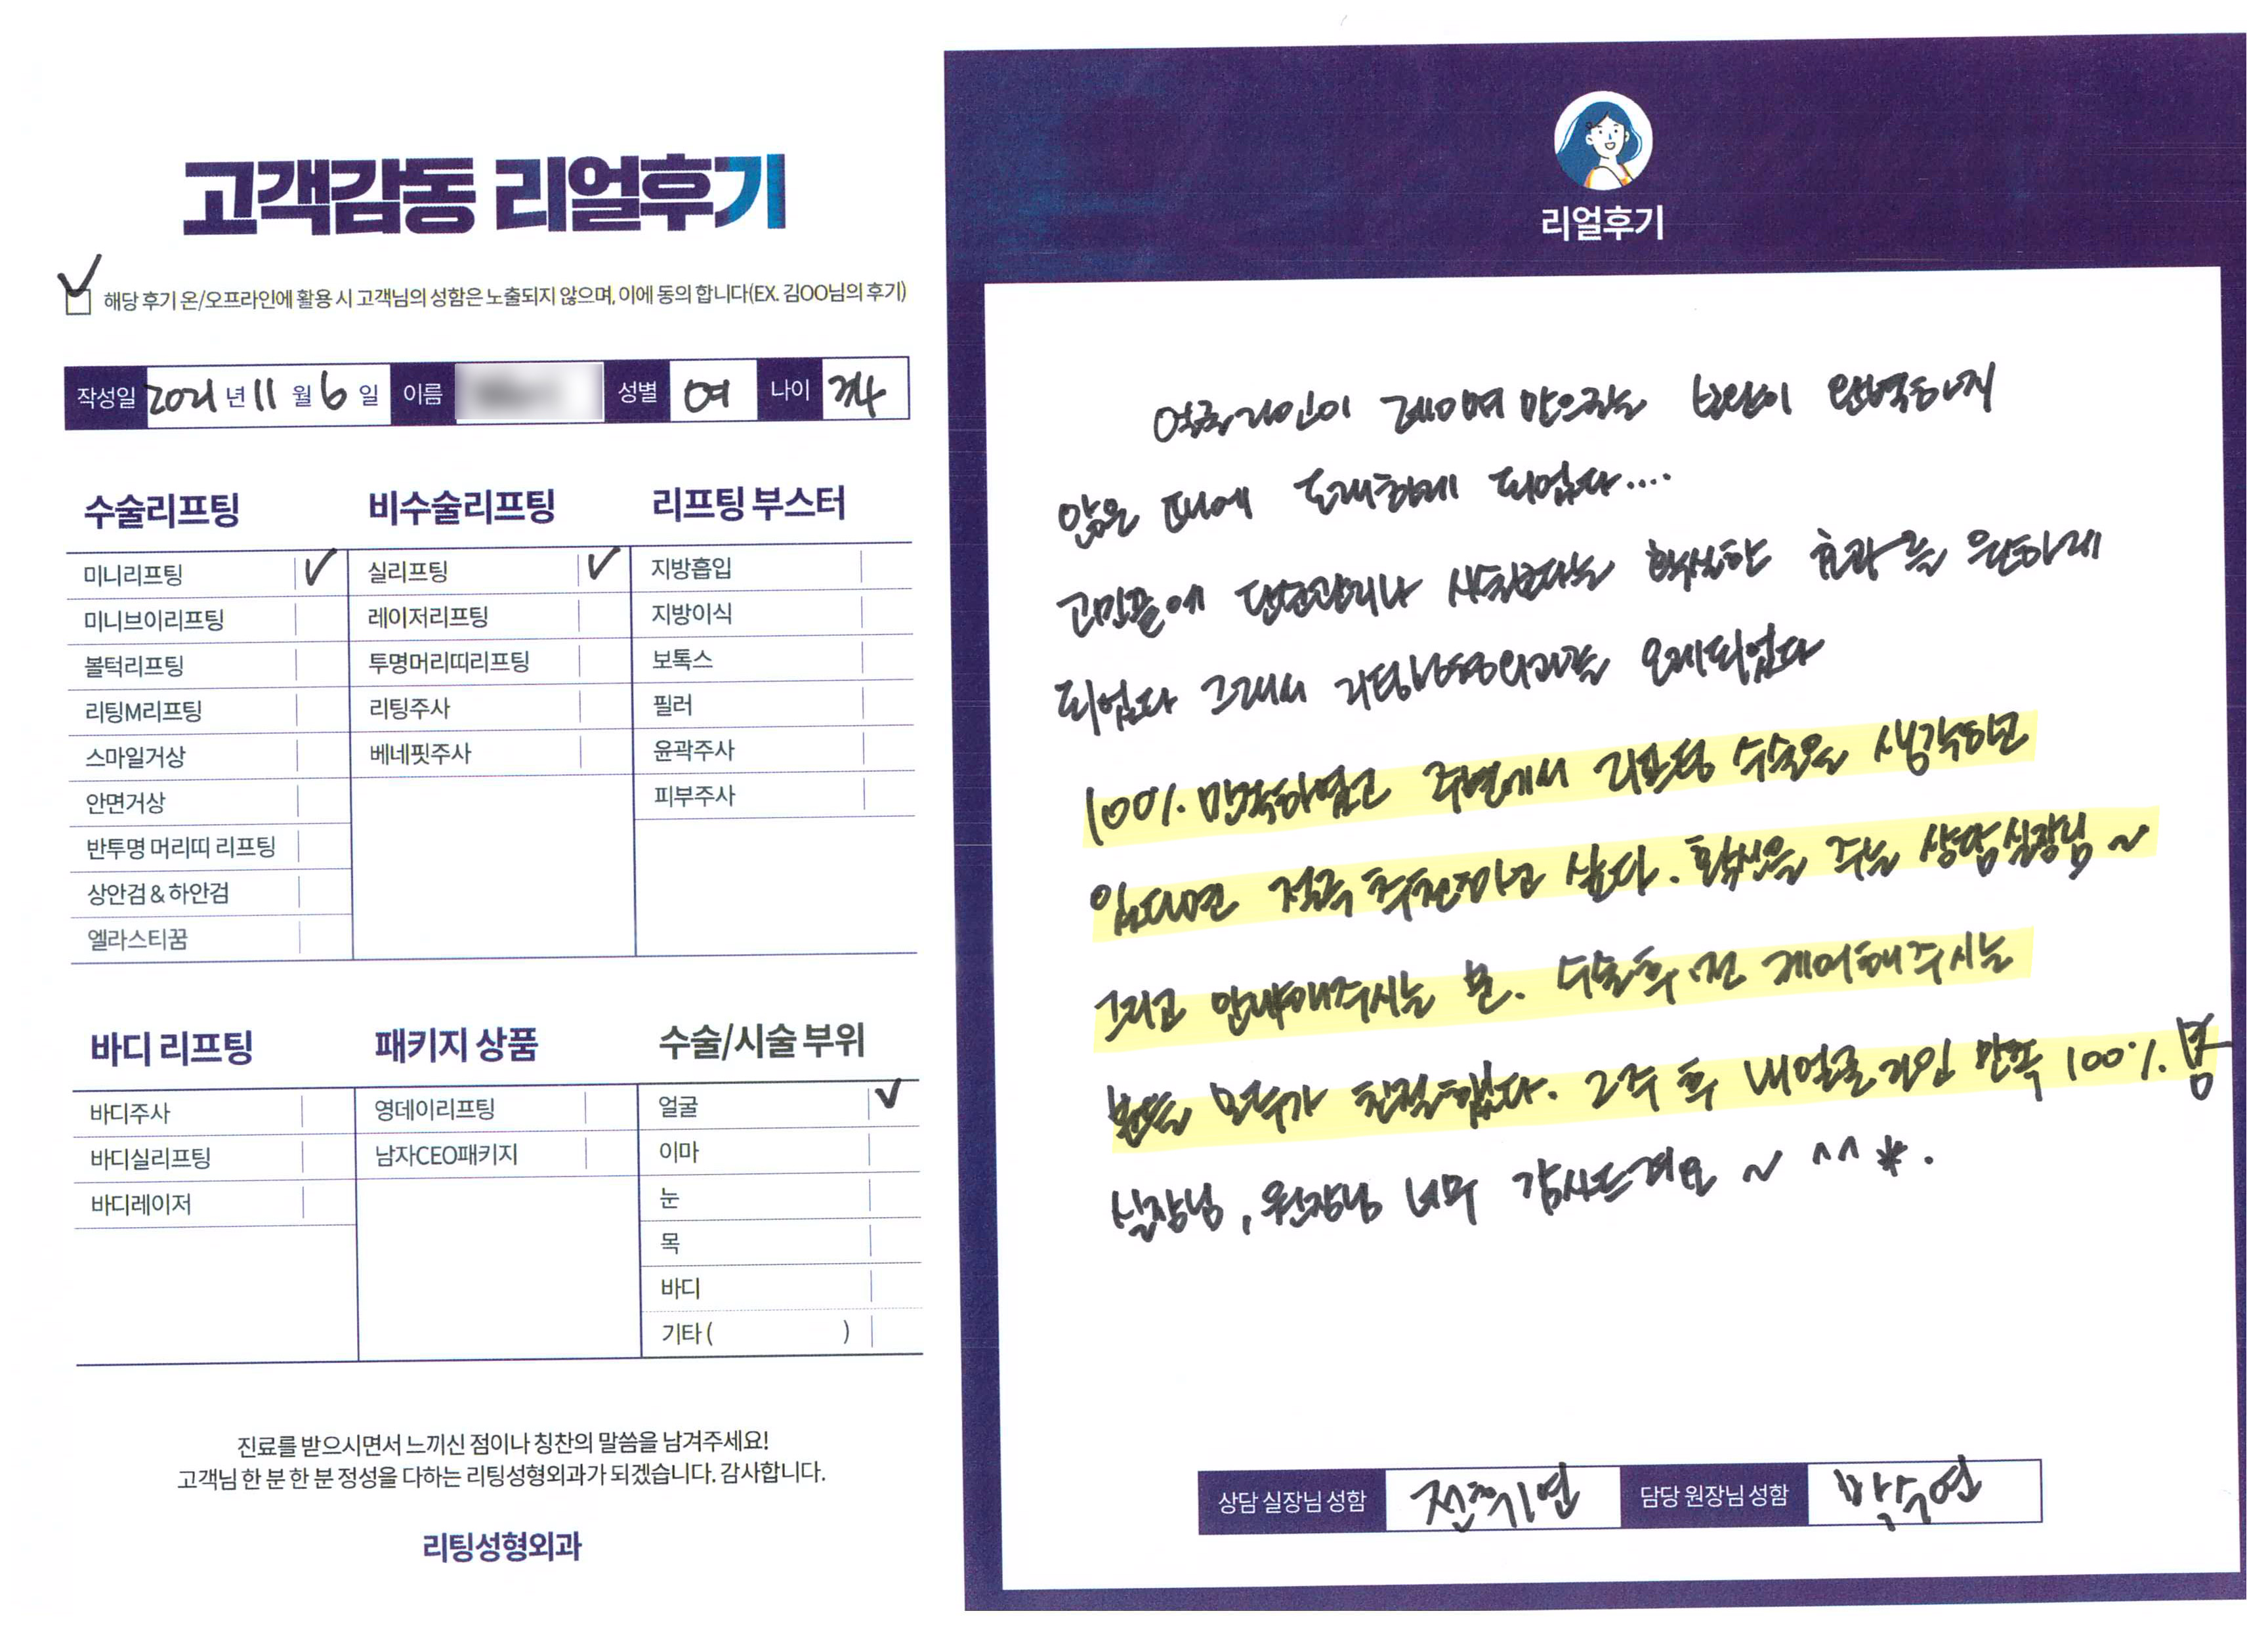 고객감동 리얼후기
해당 후기 온/오프라인에 활용 시 고객님의 성함은 노출되지 않으며, 이에 동의 합니다(EX. 김OO님의 후기)
작성일 2021년 11월 6일 이름 성별 여 나이
수술리프팅
미니리프팅
미니브이리프팅
볼턱리프팅
리팅M리프팅
스마일거상
안면거상
반투명 머리띠 리프팅
상안검 & 하안검
엘라스티꿈
비수술리프팅
실리프팅
레이저리프팅
투명머리띠리프팅
리팅주사
베네핏주사
리프팅 부스터
지방흡입
지방이식
보톡스
필러
윤곽주사
피부주사
바디 리프팅
바디주사
바디실리프팅
바디레이저
패키지 상품
영데이리프팅
남자CEO패키지
수술/시술 부위
얼굴
이마
눈
목
바디
기타 ( )
진료를 받으시면서 느끼신 점이나 칭찬의 말씀을 남겨주세요!
고객님 한 분 한 분 정성을 다하는 리팅성형외과가 되겠습니다. 감사합니다.
리팅성형외과
리얼후기
얼굴라인이 레이져 만으로는 보완이 완벽하지
않은 때에 도래하게 되었다....
고민끝에 단순관리나 시술보다는 확실한 효과를 원하게
되었다 그래서 리팅성형외과를 오게되었다
100% 만족하였고 주변에서 리프팅 수술을 생각하면
있다면 적극 추천하고 싶다. 확신을 주는 상담실장님 ~
그리고 안내해주시는 분. 수술후.전 케어해주시는
분들 모두가 친절했다. 2주 후 내얼굴라인 만족 100%.
실장님, 원장님 너무 감사드려요 ~ ^^ *.
상담 실장님 성함 담당 원장님 성함 박수연